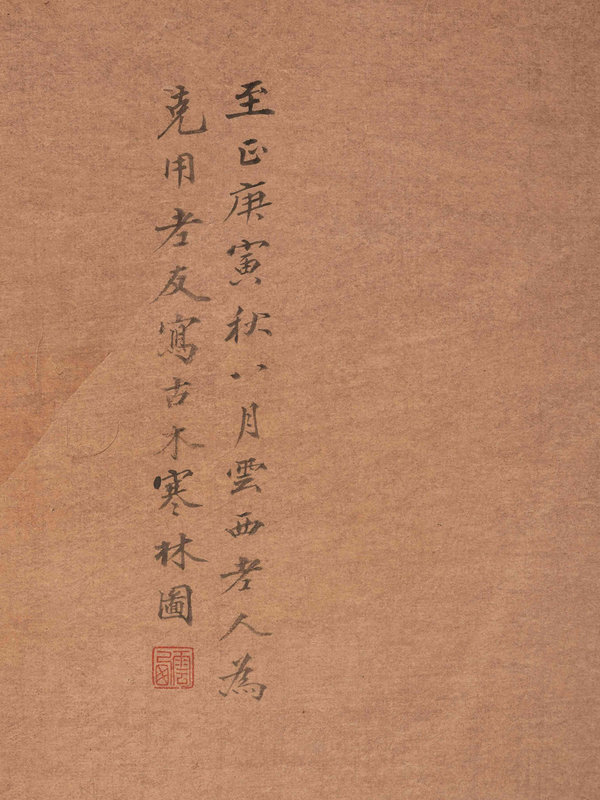 至正庚寅秋八月雲西老人為
克用老友寫古木寒林圖
雲西